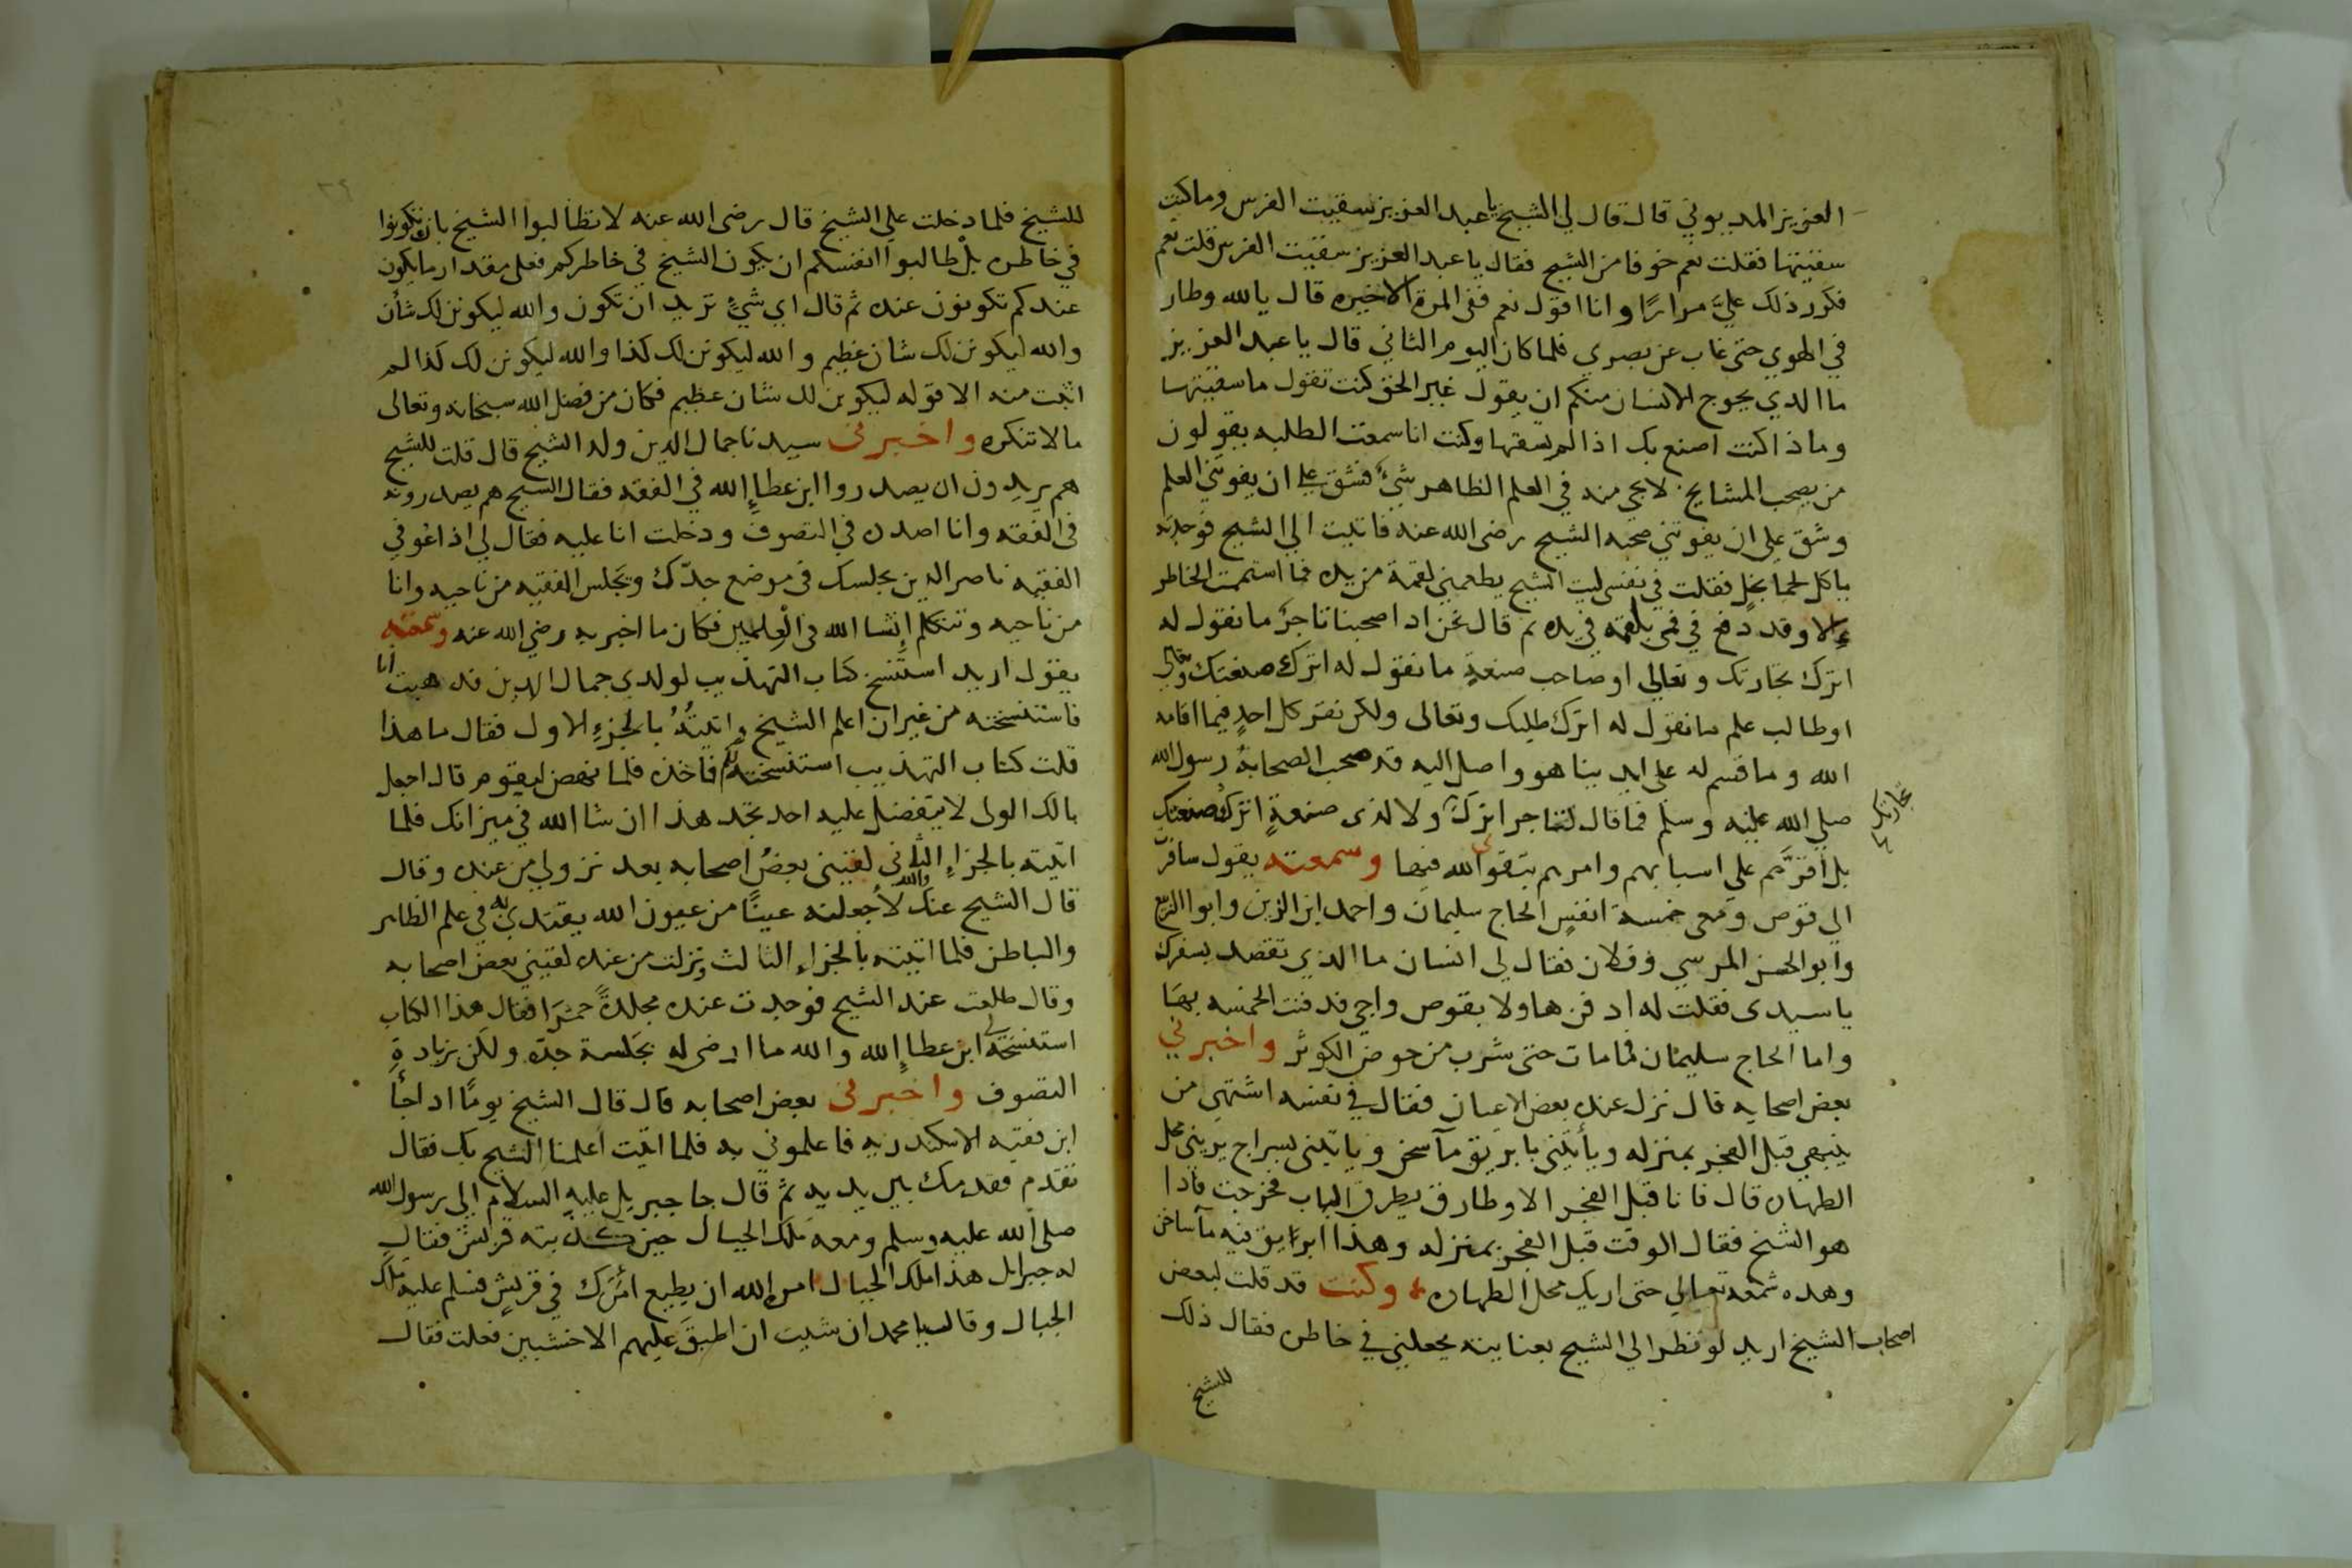 العزيز المديوني قال قال لي الشيخ يا عبد العزيز سقيت الفرس وما كنت
سقيتها فقلت نعم خوفا من الشيخ فقال يا عبد العزيز سقيت الفرس قلت نعم
فكرر ذلك عليَّ مرارًا وانا اقول نعم ففى المرة الاخيره قال يا لله وطار
في الهوي حتى غاب عن بصري فلما كان اليوم الثاني قال يا عبد العزيز
ما الذي يحوج الانسان منكم ان يقول غير الحق كنت تقول ما سقيتها
وماذا كنت اصنع بك اذا لم تسقها وكنت انا سمعت الطلبه يقولون
من يصحب المشايخ لا يجي منه في العلم الظاهر شيء فشق علي ان يفوتني العلم
وشق علي ان يفوتني صحبه الشيخ رضى الله عنه فاتيت الي الشيخ فوجدته
ياكل لحما بخل فقلت في نفسى ليت الشيخ يطعمني لقمة من يده فما استممت الخاطر
الا وقد دفع في فمي بلقمه في يده ثم قال نحن اذا صحبنا تاجرٌ ما نقول له
اترك تجارتك وتعالي او صاحب صنعةٍ ما نقول له اترك صنعتك وتعالي
او طالب علم ما نقول له اترك طلبك وتعالى ولكن نقر كل احدٍ فيما اقامه
الله وما قسم له على ايدينا هو واصل اليه قد صحب الصحابةُ رسول الله
صلي الله عليه وسلم فما قال لتاجر اترك تجارتك ولا لذى صنعةٍ اترك صنعتك
بل اقرَّهم علي اسبابهم وامرهم بتقوي الله فيها وسمعته يقول سافرتُ
الي قوص ومعى خمسة انفسٍ الحاج سليمان واحمد ابن الزين وابوا الربيع
وابو الحسن المرسي وفلان فقال لي انسان ما الذي تقصد بسفرك
يا سيدى فقلت له ادفن هاولا بقوص واجي فدفنت الخمسه بها
واما الحاج سليمان فما مات حتى شرب من حوض الكوثر واخبرني
بعض اصحابه قال نزل عنده بعض الاعيان فقال في نفسه اشتهى من
ينبهي قبل الفجر بمنزله وياتيني بابريق مآ سخن وياتيني بسراج يريني محل
الطهاره قال فانا قبل الفجر الا وطارق يطرق الباب فخرجت فاذا
هو الشيخ فقال الوقت قبل الفجر بمنزله وهذا ابريق فيه مآ ساخن
وهذه شمعه تعالي حتى اريك محل الطهاره وكنت قد قلت لبعض
اصحاب الشيخ اريد لو نظر الي الشيخ بعنايته يجعلني في خاطره فقال ذلك
للشيخ
للشيخ فلما دخلت علي الشيخ قال رضى الله عنه لا تطالبوا الشيخ بان تكونوا
في خاطره بل طالبوا انفسكم ان يكون الشيخ في خاطركم فعلى مقدار ما يكون
عندكم تكونون عنده ثم قال اي شيءٍ تريد ان تكون والله ليكونن لك شأن
والله ليكونن لك شان عظيم والله ليكونن لك كذا والله ليكونن لك كذا لم
اثبت منه الا قوله ليكونن لك شان عظيم فكان من فضل الله سبحانه وتعالى
ما لا تنكره واخبرنى سيدنا جمال الدين ولد الشيخ قال قلت للشيخ
هم يريدون ان يصدروا ابن عطاءِ الله في الفقه فقال الشيخ هم يصدرونه
فى الفقه وانا اصدره في التصوف ودخلت انا عليه فقال لي اذا عوفي
الفقيه ناصر الدين يجلسك فى موضع جدّك ويجلس الفقيه من ناحيه وانا
من ناحيه ونتكلم إنشا الله فى العِلمين فكان ما اخبر به رضي الله عنه وسمعته
يقول اريد استنسخ كتاب التهذيب لولدي جمال الدين فذهبت انا
فاستنسخته من غير ان اعلم الشيخ واتيتُهُ بالجزءِ الاول فقال ما هذا
قلت كتاب التهذيب استنسخته لكم فاخذه فلما نهض ليقوم قال اجعل
بالك الولى لا يتفضل عليه احد تجد هذا ان شا الله في ميزانك فلما
اتيته بالجزاءِ الثاني لقيني بعضُ اصحابه بعد نزولي من عنده وقال
قال الشيخ عنك والله لأجعلنه عينًا من عيون الله يقتدي به في علم الظاهر
والباطن فلما اتيته بالجزاء الثالث ونزلت من عنده لقيني بعض اصحابه
وقال طلعت عند الشيخ فوجدت عنده مجلدةً حمرَا فقال هذا الكتاب
استنسخه لي ابن عطاءِ الله والله ما ارضى له بجلسة جدّه ولكن بزيادةِ
التصوف واخبرنى بعض اصحابه قال قال الشيخ يومًا اذا جأ
ابن فقيه الاسكندريه فاعلموني به فلما اتيت اعلمنا الشيخ بك فقال
تقدّم فقدمك بين يديه ثم قال جا جبريل عليه السلام الي رسول الله
صلى الله عليه وسلم ومعه ملك الجبال حين كذبته قريش فقال
له جبرايل هذا ملك الجبال امره الله ان يطيع امْرَك في قريشٍ فسلم عليه ملك
الجبال وقال يا محمد ان شيت ان اطبقَ عليهم الاخشبين فعلت فقال